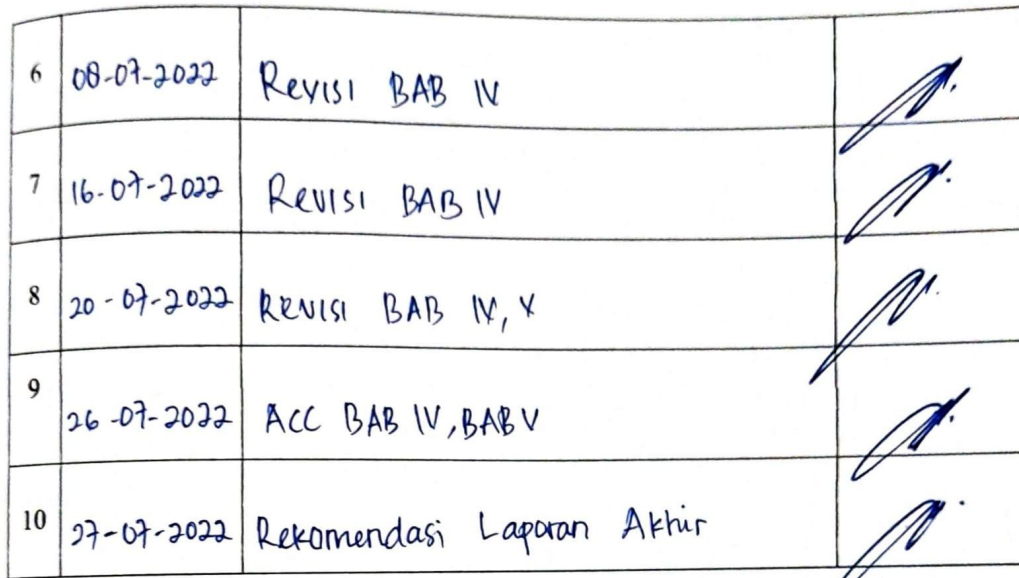 6 08-07-2022 Revisi BAB IV
7 16-07-2022 Revisi BAB IV
8 20-07-2022 Revisi BAB IV, V
9 26-07-2022 ACC BAB IV, BAB V
10 27-07-2022 Rekomendasi Laporan Akhir